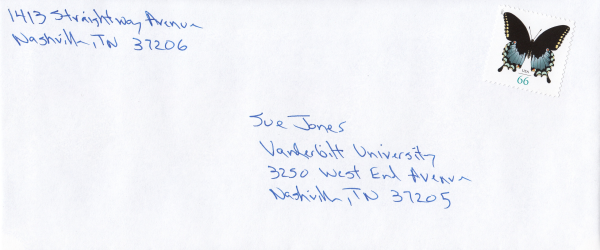 1413 Straightway Avenue
Nashville, TN 37206
USA
66
Sue Jones
Vanderbilt University
3250 West End Avenue
Nashville, TN 37205